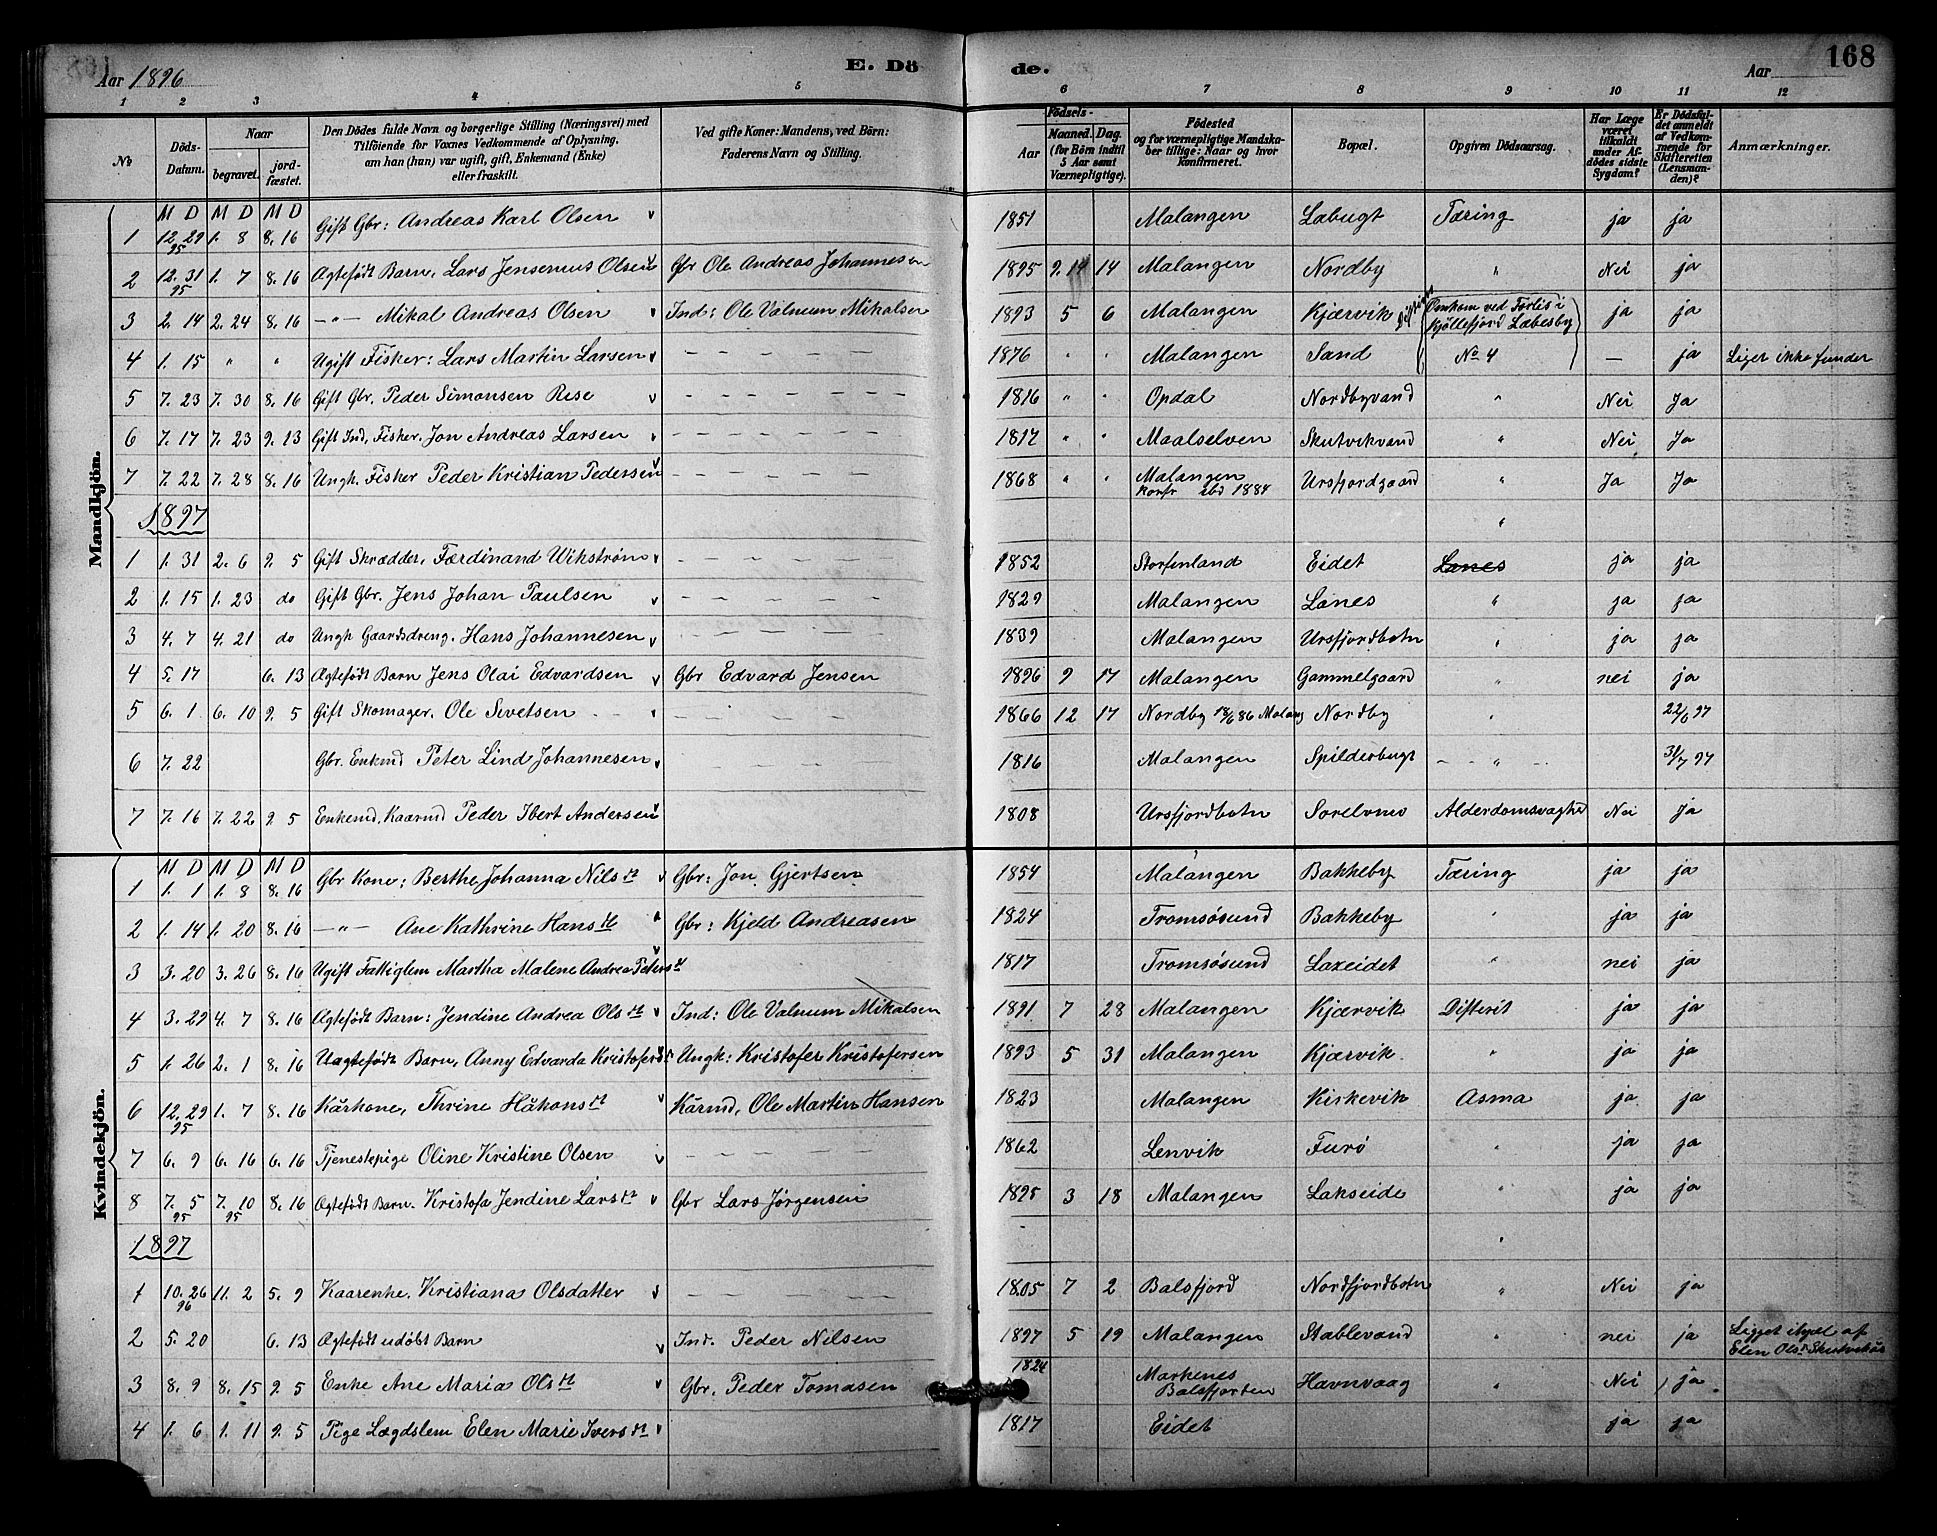 Aar 1896
E. Dö
de.
Aar
168
1 2 3 4 5 6 7 8 9 10 11 12
No
Döds-Datum.
Naar
begravet.
jordfæstet.
Den Dödes fulde Navn og borgerlige Stilling (Næringsvei) med
Tilföiende for Voxnes Vedkommende af Oplysning,
om han (han) var ugift, gift, Enkemand (Enke)
eller fraskilt.
Ved gifte Koner: Mandens, ved Börn:
Faderens Navn og Stilling.
Födsels-
Aar
Maaned. Dag.
(for Börn indtil
5 Aar samt
Værnepligtige).
Födested
og for værnepligtige Mandskaber tillige: Naar og hvor
Konfirmeret.
Bopæl.
Opgiven Dödsaarsag.
Har Læge
været
tilkaldt
under Afdödes sidste
Sygdom?
Er Dödsfaldet anmeldt
af Vedkommende for
Skifteretten
(Lensmanden)?
Anmærkninger.
Mandkjön.
M D M D M D
1 12. 29 95 1. 8 8. 16 Gift Gbr: Andreas Karl Olsen 1851 Malangen Labugt Tæring ja ja
2 12. 31 95 1. 7 8. 16 Ægtefødt Barn, Lars Jensenius Olsen Gbr Ole Andreas Johannesen 1895 9. 14 14 Malangen Nordby " Nei ja
3 2. 14 2. 24 8. 16 -"- Mikal Andreas Olsen Ind: Ole Valnum Mikalsen 1893 5 6 Malangen Kjærvik Omkom ved Forlis i Kjöllefjord Læbesby ja ja
4 1. 15 " " Ugift Fisker: Lars Martin Larsen — — — 1876 " " Malangen Sand No 4 — ja Liget ikke funden
5 7. 23 7. 30 8. 16 Gift Gbr. Peder Simonsen Rise — — — 1816 " " Opdal Nordbyvand " Nei Ja
6 7. 17 7. 23 9. 13 Gift Ind, Fisker, Jon Andreas Larsen — — — 1817 " " Maalselven Skutvikvand " Nei Ja
7 7. 22 7. 28 8. 16 Ungk. Fisker Peder Kristian Pedersen — — — 1868 " " Malangen Konfr ibd 1884 Ursfjordgaard " Ja Ja
1897 "
1 1. 31 2. 6 9. 5 Gift Skrædder, Færdinand Wikstrøm — — — 1852 Storfinland Eidet Lanes ja ja
2 1. 15 1. 23 do Gift Gbr. Jens Johan Paulsen — — — 1829 Malangen Lanes " ja ja
3 4. 7 4. 21 do Ungk Gaardsdreng. Hans Johannesen — — — 1839 Malangen Ursfjordbotn " ja ja
4 5. 17 6. 13 Ægtefødt Barn Jens Olai Edvardsen Gbr Edvard Jensen 1896 9 17 Malangen Gammelgaard " nei ja
5 6. 1 6. 10 9. 5 Gift Skomager. Ole Sivetsen — — — 1866 12 17 Nordby 18/6 86 Malang Nordby " 22/6 97
6 7. 22 Gbr. Enkmd Peter Lind Johannesen — — — 1816 Malangen Spilderbugt — " — 31/7 97
7 7. 16 7. 22 9. 5 Enkemd, Kaarmd Peder Ibert Andersen 1808 Ursfjordbotn Alderdomsvaghed Nei Ja
Kvindekjön.
M D M D M D
1 1. 1 1. 8 8. 16 Gbr Kone: Berthe Johanna Nilsdt Gbr: Jon Gjertsen 1854 Malangen Bakkeby Tæring ja ja
2 1. 14 1. 20 8. 16 -"- Ane Kathrine Hansdt Gbr: Kjeld Andreasen 1824 Tromsøsund Bakkeby " ja ja
3 3. 20 3. 26 8. 16 Ugift Fattiglem Martha Malene Andrea Petersdt 1817 Tromsøsund Laxeidet " nei ja
4 3. 29 4. 7 8. 16 Ægtefødt Barn: Jendine Andrea Olsdt Ind: Ole Valnum Mikalsen 1891 7 28 Malangen Kjærvik Difterit ja ja
5 1. 26 2. 1 8. 16 Uægtefødt Barn, Anny Edvarda Kristofersdt Ungk: Kristofer Kristofersen 1893 5 31 Malangen Kjærvik " ja ja
6 12. 29 95 1. 7 8. 16 Kårkone, Thrine Håkonsdt Kårmd, Ole Martin Hansen 1823 Malangen Kirkevik Asma ja ja
7 6. 9 6. 16 6. 16 Tjenestepige Oline Kristine Olsen — — — 1862 Lenvik Furø " ja ja
8 7. 5 95 7. 10 95 8. 16 Ægtefødt Barn. Kristofa Jendine Larsdt Gbr Lars Jørgensen 1895 3 18 Malangen Lakseide " ja ja
1897 "
1 10. 26 96 11. 2 5. 9 Kaarenke, Kristiana Olsdatter — — — 1805 7 2 Balsfjord Nordfjordbotn " Nei ja
2 5. 20 6. 13 Ægtefødt udøbt Barn Ind. Peder Nilsen 1897 5 19 Malangen Stablevand " nei ja Ligget ihjel af Elen Olsd Skutvikås
3 8. 9 8. 15 9. 5 Enke Ane Maria Olsdt Gbr. Peder Tomasen 1824 Markenes Balsfjorden Havnvaag " Nei ja
4 1. 6 1. 11 9. 5 Pige Lægdslem Elen Marie Iversdt 1817 Eidet ja ja